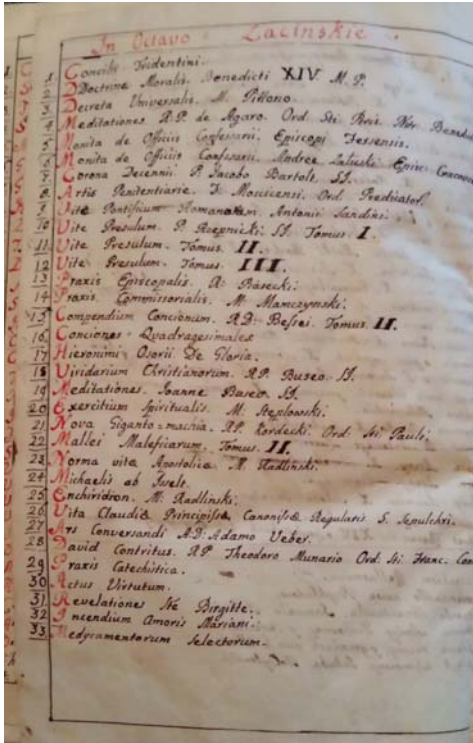 In Octavo Łacinskie.
1. Concilii Tridentini.
2. DDoctrinæ Moralis. Benedicti XIV. M. P.
3. Decreta Universalis. M. Pittono.
4. Meditationes R.P. de Agaro. Ord. Sti
5. Monita de Officiis Confessarii. Episcopi
6. Monita de Officiis Confessarii. Andreæ Załuski Episc:
7. Corona Decennii. P. Jacobo Bartolt. SJ.
8. Artis Penitentiariæ. F. Moscicensi. Ord. Predicator.
9. Vitæ Pontificum Romanorum. Antonii Sandini.
10. Vitæ Presulum. P. Rzepnicki SJ. Tomus I.
11. Vitæ Presulum. Tomus. II.
12. Vitæ Presulum. Tomus. III.
13. Praxis Episcopalis. R:
14. Praxis Commissorialis. M: Mamczynski.
15. Compendium Concionum. R.D: Bessei. Tomus. II.
16. Conciones Quadragesimales
17. Hieronimi Osorii De Gloria.
18. Viridarium Christianorum. R.P. Buseo SJ.
19. Meditationes. Joanne Buseo SJ.
20. Exercitium Spiritualis. M. Steplowski.
21. Nova Giganto=machia. R.P. Kordecki Ord: Sti Pauli.
22. Mallei Maleficarum. Tomus. II.
23. Norma vitæ Apostolicæ M. Radlinski.
24. Michaelis ab Isselt.
25. Enchiridron. M. Radlinski.
26. Vita Claudiæ Principissæ, Canonissæ Regularis S. Sepulchri.
27. Ars Conversandi A.D: Adamo Veber.
28. David Contritus. R.P Theodoro Munario Ord: Sti: Franc. Con
29. Praxis Catechistica.
30. Actus Virtutum.
31. Revelationes Stæ Birgittæ.
32. Incendium Amoris Mariani.
33. Medycamentorum Selectorum.